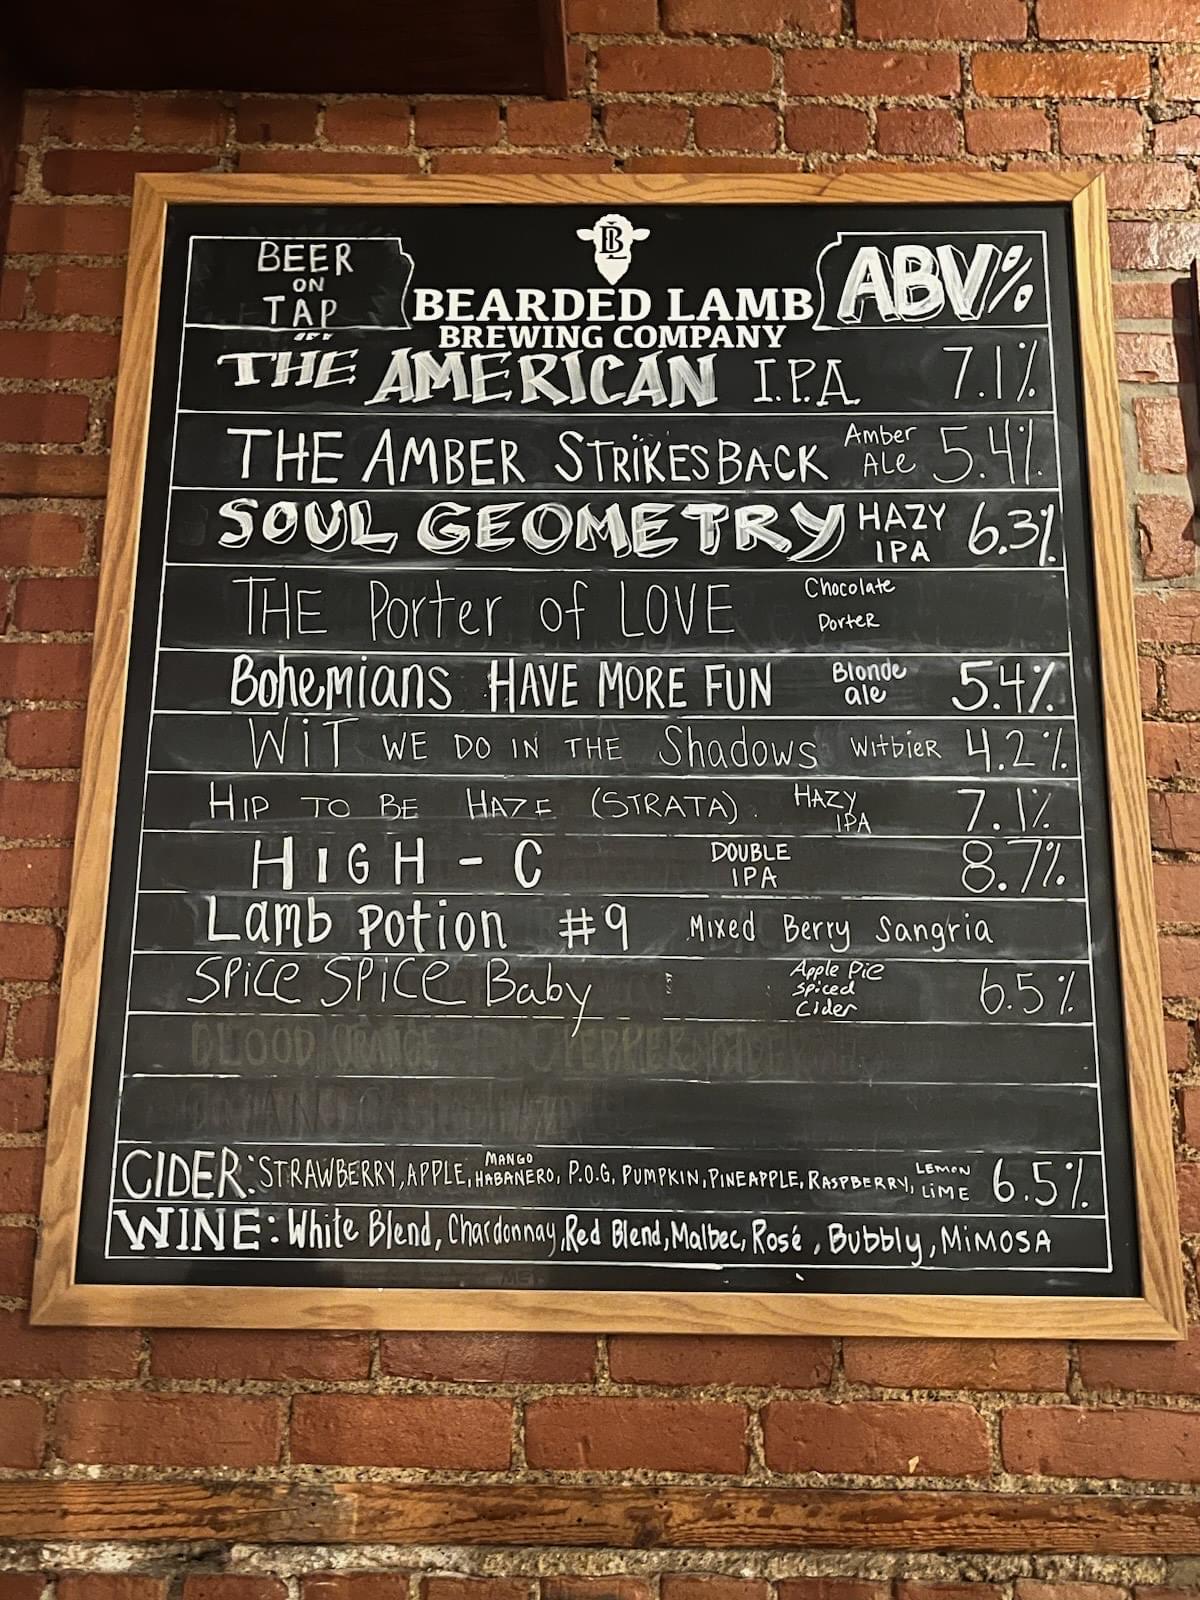 BEER
ON
TAP
BL
BEARDED LAMB
BREWING COMPANY
ABV%
THE AMERICAN I.P.A. 7.1%
THE AMBER STRIKES BACK Amber ALe 5.4%
SOUL GEOMETRY HAZY IPA 6.3%
THE Porter of LOVE Chocolate PorteR
Bohemians HAVE MORE FUN Blonde ale 5.4%
WiT WE DO IN THE Shadows WitbieR 4.2%
HIP TO BE HAZE (STRATA). HAZY IPA 7.1%
HIGH - C DOUBLE IPA 8.7%
Lamb Potion #9 Mixed Berry Sangria
SPiCE SPiCE Baby Apple Pie Spiced Cider 6.5%
BLOOD ORANGE PEPPER
CIDER: STRAWBERRY, APPLE, MANGO HABANERO, P.O.G, PUMPKIN, PINEAPPLE, RASPBERRY, LEMON LIME 6.5%
WINE: White Blend, Chardonnay, Red Blend, Malbec, Rosé, Bubbly, MiMOSA